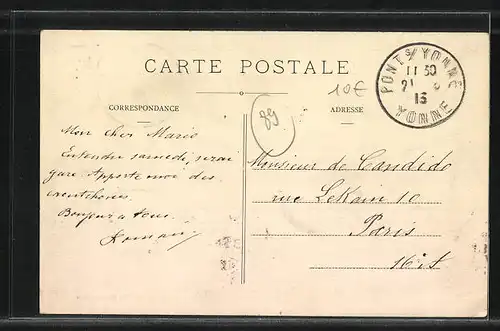 CARTE POSTALE
CORRESPONDANCE
ADRESSE
10€
89
PONT S/YONNE
11 30
21
15
YONNE
Mon cher Mario
Entendu samedi, serai
gare. Apporte moi des
Bonjour a tous.
Monsieur de Candido
rue LeKain 10
Paris
16è